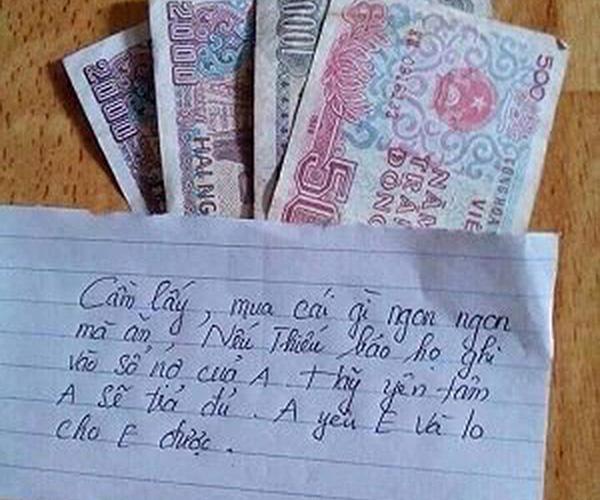 2000
2000
HAI NG
000
500
NĂM
TRĂM
ĐỒNG
50
Cầm lấy, mua cái gì ngon ngon
mà ăn, Nếu Thiếu bảo họ ghi
vào sổ nợ của A. Hãy yên tâm
A sẽ trả đủ. A yêu E và lo
cho E được.